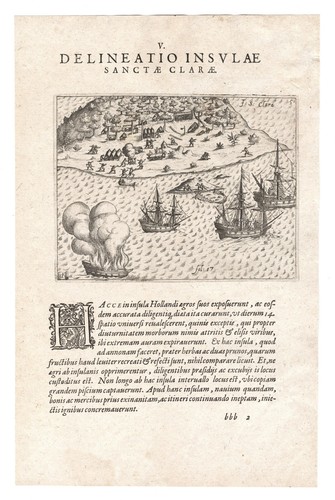 V.
DELINEATIO INSVLAE
SANCTÆ CLARÆ.
I. S. Clara
HACCE in insula Hollandi ægros suos exposuerunt, ac eos-
dem accurata diligentia, diæta ita curarunt, vt dierum 14.
spatio vniversi revalescerent, quinis exceptis, qui propter
diuturnitatem morborum nimis attritis & elisis viribus,
ibi extremam auram exspiraverunt. Ex hac insula, quod
ad annonam faceret, præter herbas ac duas prunos, quarum
fructibus haud leviter recreati & refecti sunt, nihil comparare licuit. Et, ne
ægri ab insulanis opprimerentur, diligentibus præsidijs ac excubijs is locus
custoditus est. Non longo ab hac insula intervallo locus est, vbi copiam
grandem piscium captauerunt. Apud hanc insulam, nauium quandam,
bonis ac mercibus prius exinanitam, ac itineri continuando ineptam, inie-
ctis ignibus concremauerunt.
bbb 2